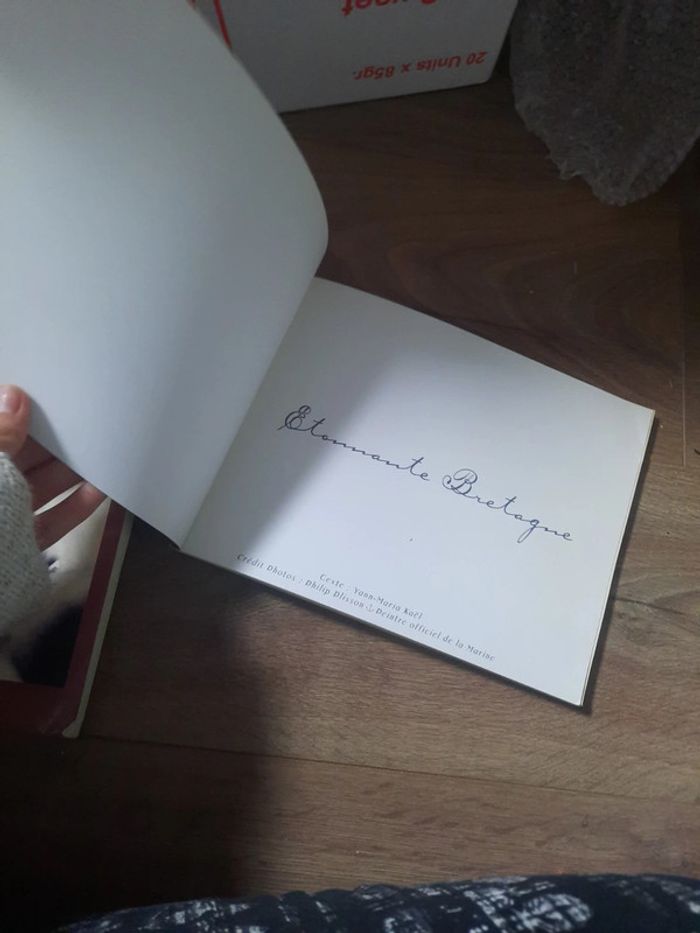 20 Units x 85gr.
Etonnante Bretagne
Texte : Yann-Maria Koël
Crédit Photos : Philip Plisson Peintre officiel de la Marine